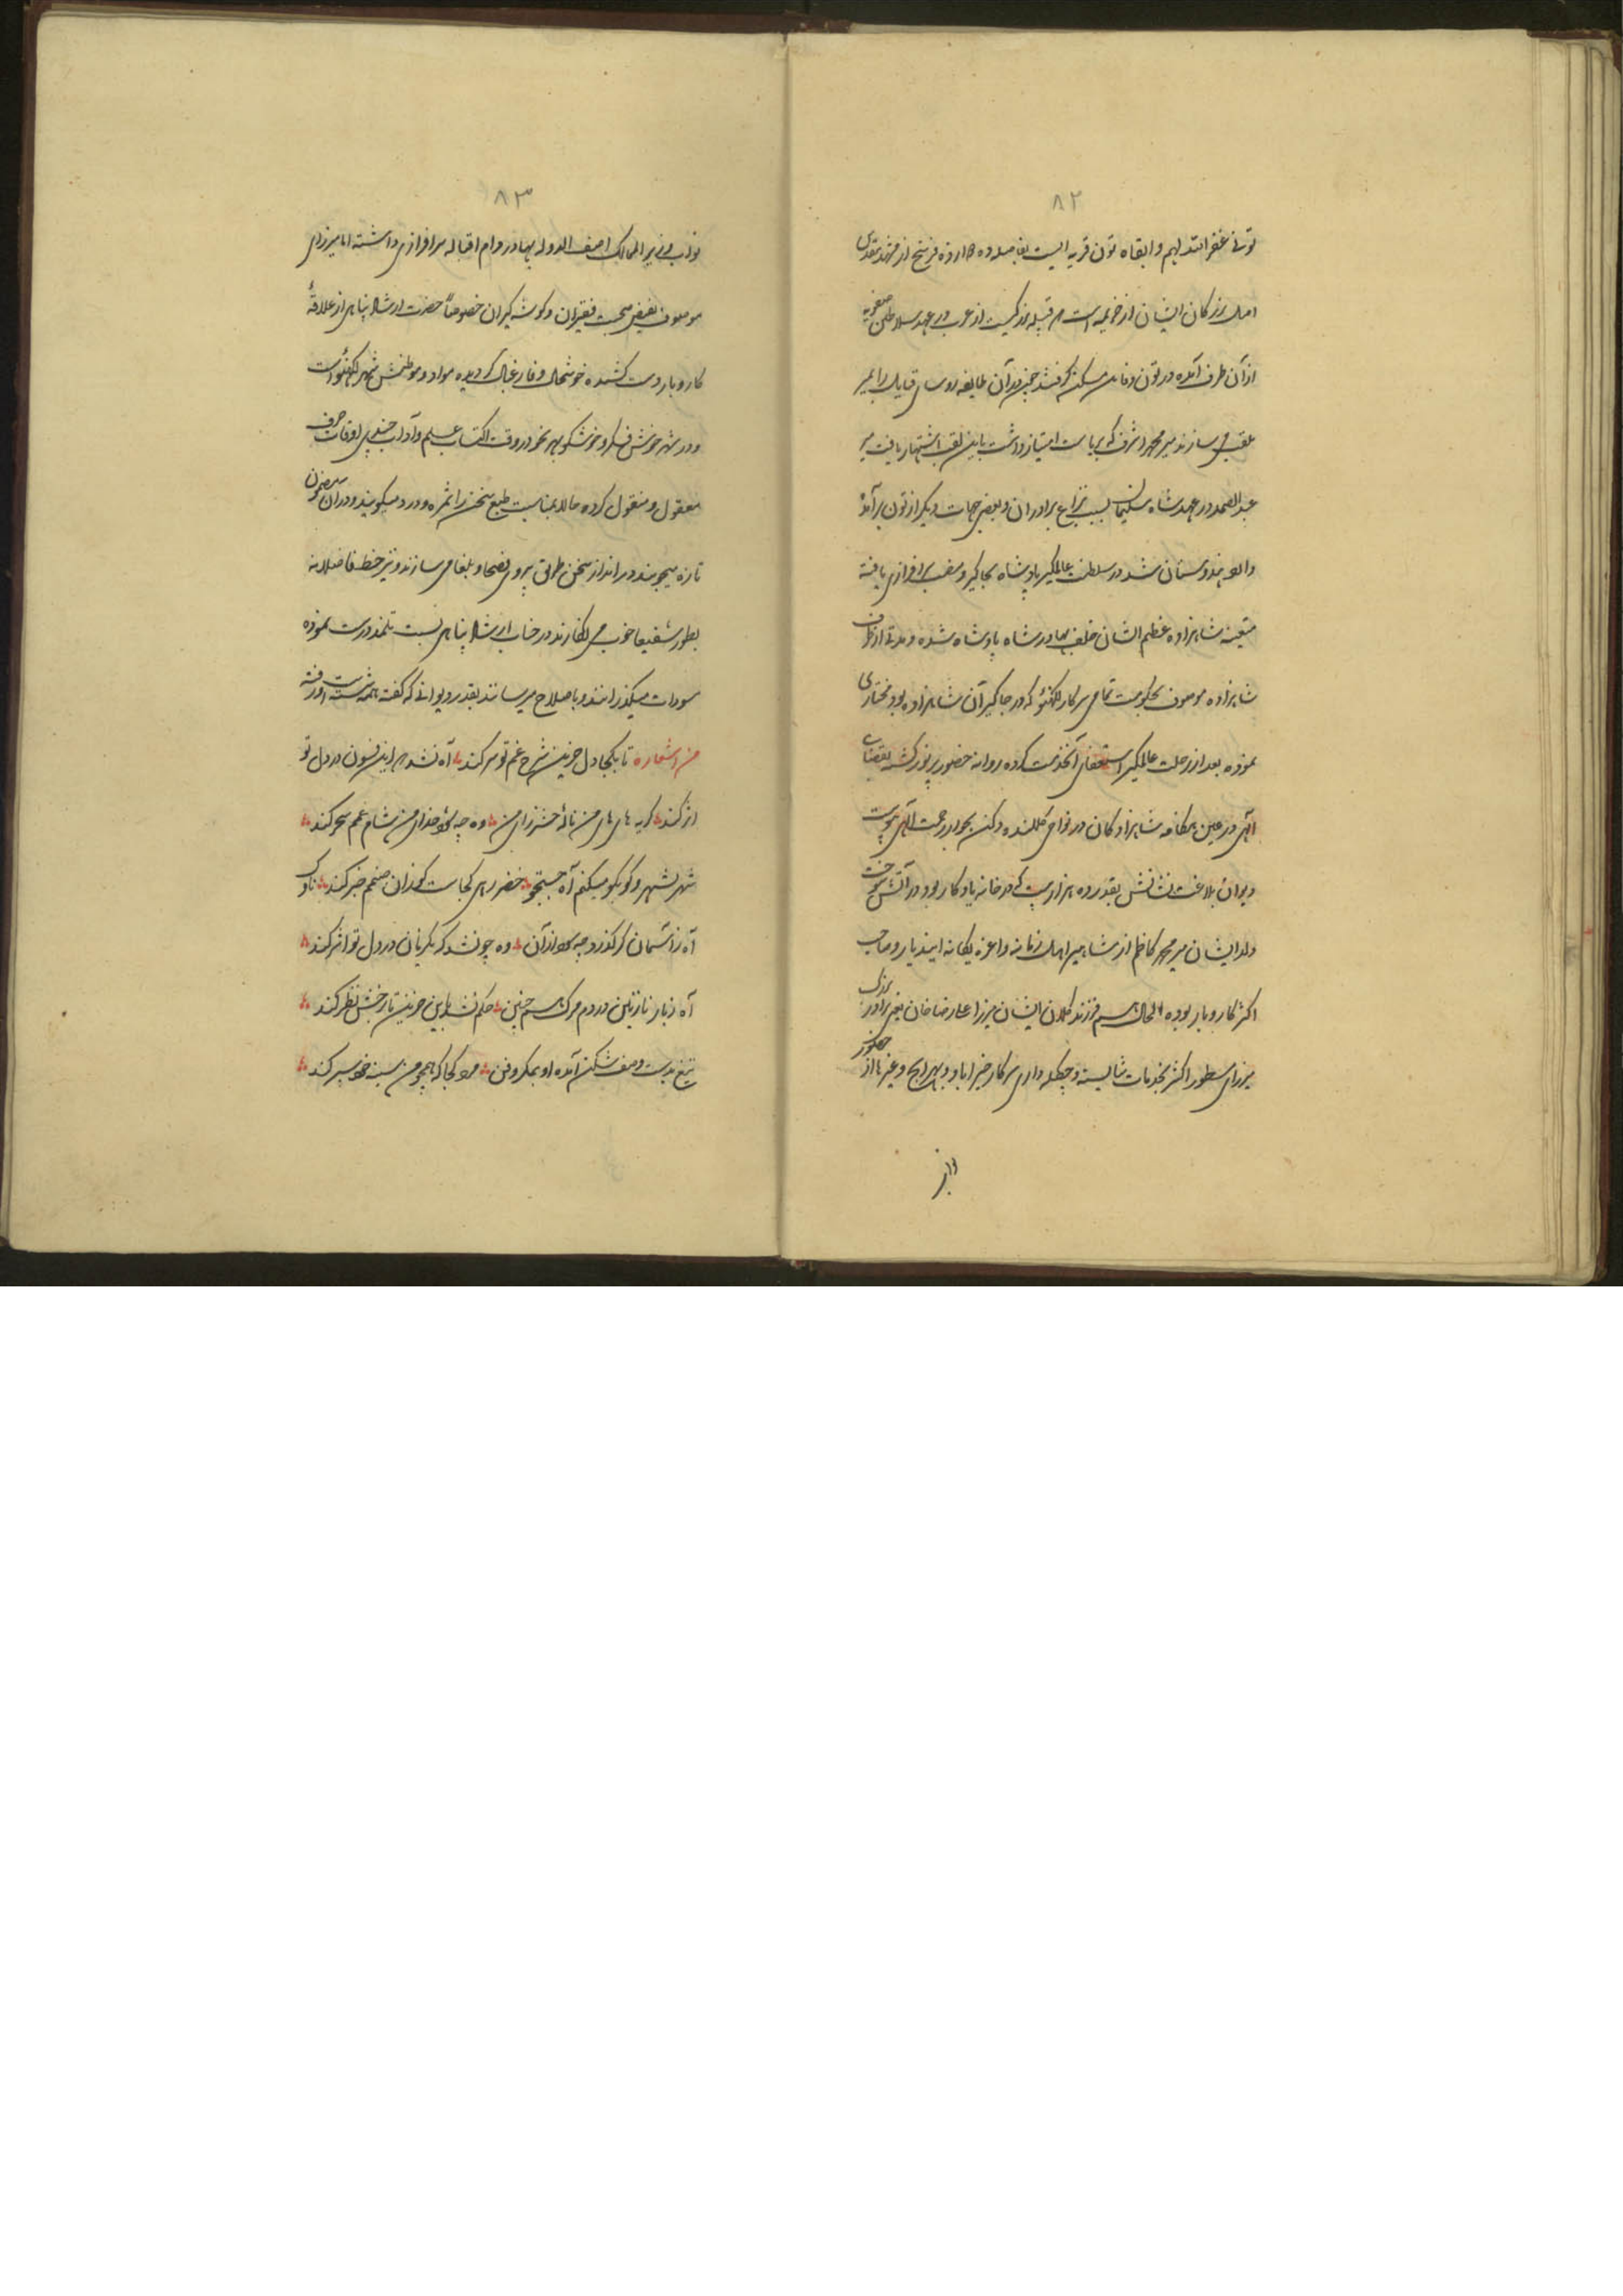 ۸۲
تونی غفر الله لهم و ابقاه تون قریه ایست بفاصله ده دوازده فرسخ از مشهد مقدس
اصل بزرگان ایشان از خزیمه است و قبیله بزرگیست از عرب در عهد سلاطین صفویه
از آن طرف آمده در تون و قاین مسکن گرفتند چون در آن طایفه روسای قبایل را بمیر
ملقب می سازند میر محمد اشرف که بریاست امتیاز داشت باین لقب اشتهار یافت میر
عبد الصمد در عهد شاه سلیمان بسبب نزاع برادران و بعضی جهات دیگر از تون برآمده
وارد هندوستان شد در سلطنت عالمگیر پادشاه بجاگیر و منصب سرافرازی یافته
متعینه شاهزاده عظیم الشان خلف بهادر شاه پادشاه شده و مدتی از طرف
شاهزاده موصوف بحکومت تمامی سرکار لکهنؤ که در جاگیر آن شاهزاده بود مختاری
نموده بعد از رحلت عالمگیر استعفای آنخدمت کرده روانه حضور پرنور گشته بقضای
الهی در عین هنگامه شاهزادگان در نواح دکن بجوار رحمت الهی پیوست
دیوان بلاغت نشانش بقدر ده هزار بیت که در خانه یادگار بود در آتش سوخت
ولد ایشان میر محمد کاظم از مشاهیر اهل زمانه و اعزه یگانه اینددیار و صاحب
اکثر کاروبار بوده الحال هم فرزند کلان ایشان میرزا علی رضا خان یعنی برادر بزرگ
میرزای مسطور اکثر بخدمات شایسته و چکله داری سرکار خیراباد و بهرایچ و غیرها از حضور
نواب
۸۳
نواب وزیر الممالک اصف الدوله بهادر دام اقباله سرافرازی داشته اما میرزای
موصوف بفیض صحبت فقیران و گوشه گیران خصوصاً حضرت ارشاد پناهی از علاقهٔ
کاروبار دست کشیده خوشحال و فارغبال گردیده مولد و موطنش شهر لکهنؤ است
و در شهر خوش فکر و خوشگو بهر نحو در وقت اکتساب علم و آداب چندی اوقات صرف
معقول و منقول کرده حالا بمناسبت طبع سخن را بمزه و درد میگویند و در آن مضمون
تازه میجویند در انداز سخن طرائق پیروی فصحا و بلغا می سازند و نیز خط فاضلانه
بطور شفیعا خوب می نگارند در جناب ارشاد پناهی نسبت تلمذ درست نموده
مسودات میگذرانند و باصلاح میرسانند بقدر دیوانی که گفته
من اشعاره تا بکجا دل حزین شرح غم تو سر کند آه نشد که این فسون در دل تو
اثر کند گریه های های من نالهٔ حشرزای من وه چه شود خدای من شام غمم سحر کند
شهر بشهر و کو بکو میکنم آه جستجو خضر رهی کجاست کو زان صنمم خبر کند ناوک
آه ز آسمان گر گذرد چه سود از آن وه چو نشد که یکزمان در دل تو اثر کند
آه ز یار نازنین در دم مرگ هم چنین حکم نشد باین حزین تا برخش نظر کند
تیغ بدست و صف شکن آمده او بمکر و فن مرد کجا که همچو من سینه خود سپر کند